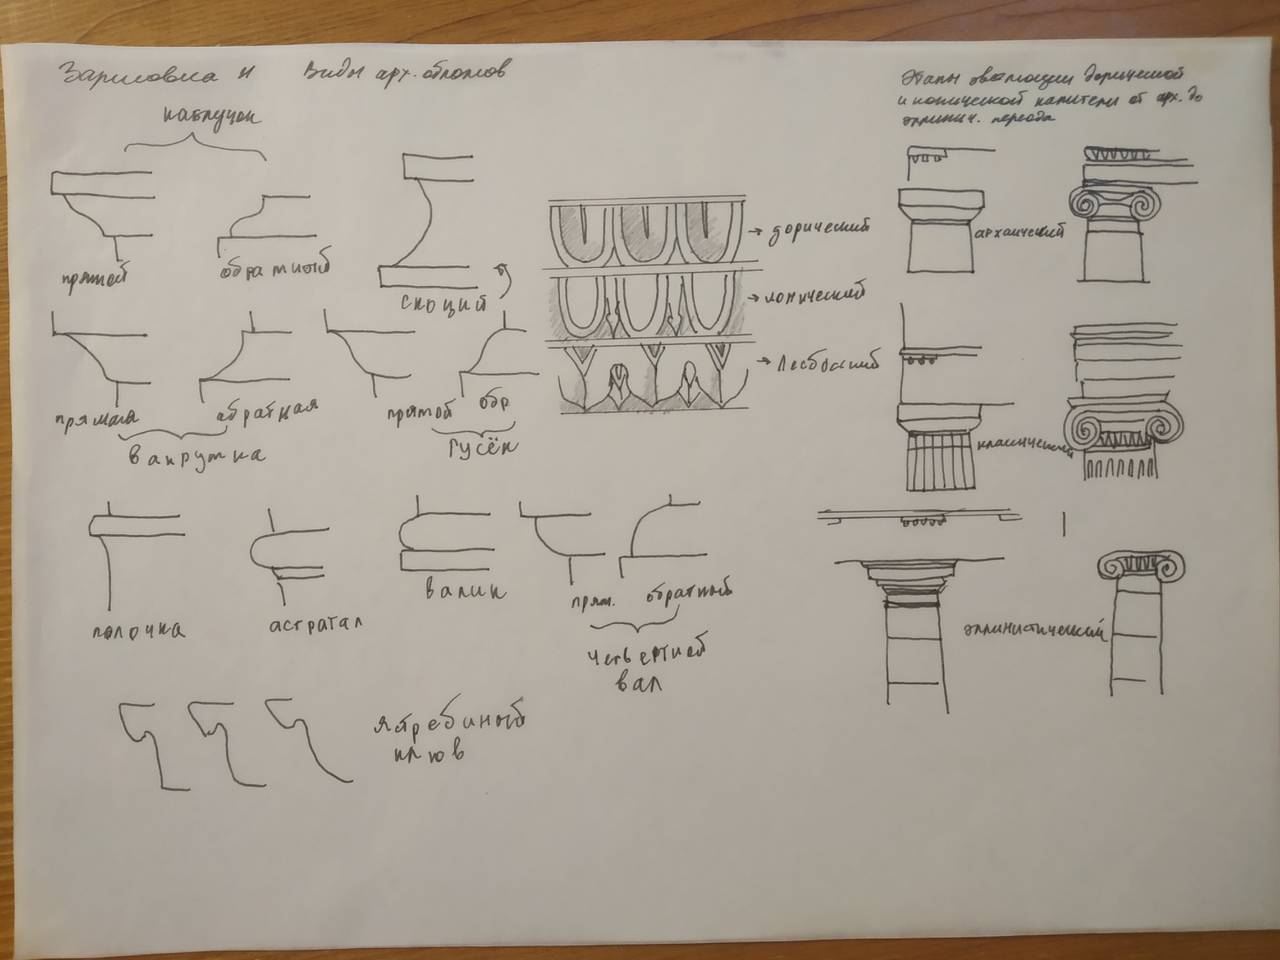 Зарисовка и виды арх. обломов
каблучок
прямой
обратный
скоций
прямая
обратная
выкружка
прямой
обр
Гусёк
→ дорический
→ ионический
→ Лесбоский
полочка
астрагал
валик
прям.
обратный
четвертной
вал
ястребиный
клюв
Этапы эволюции дорической
и ионической капители от арх. до
эллинич. периода
архаический
классический
эллинистический